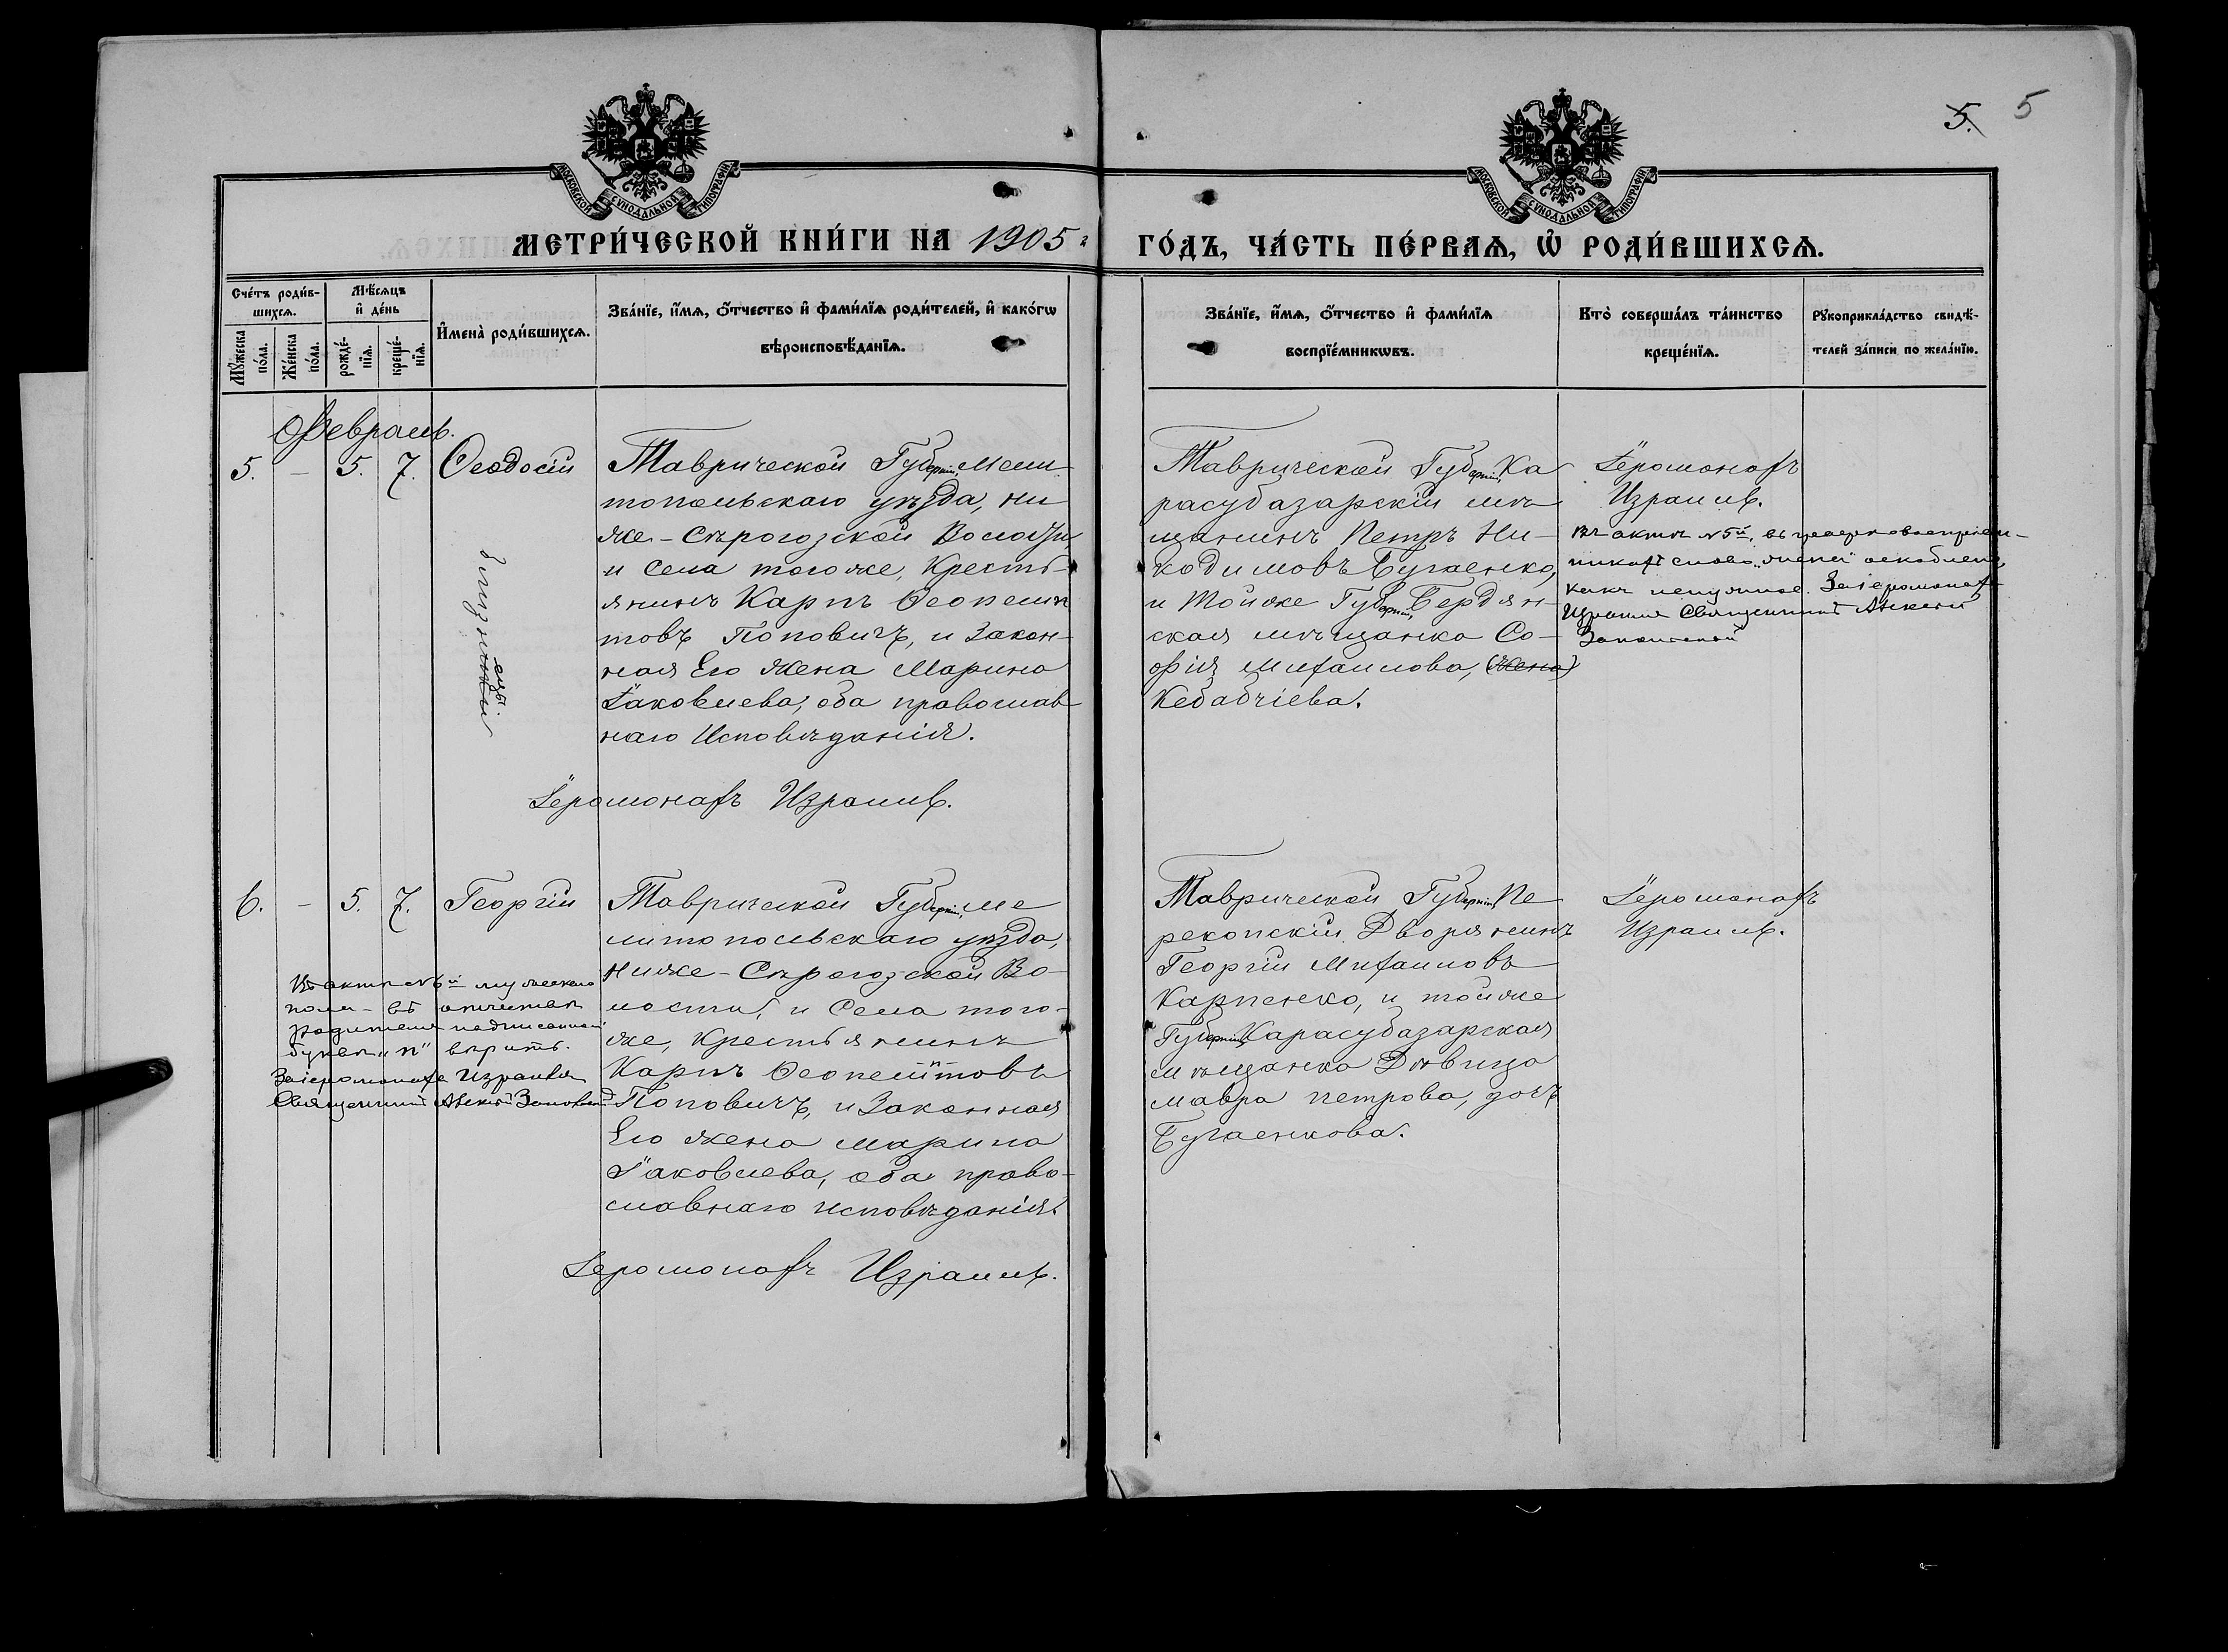 5. 5
МОСКОВСКОЙ СѴНОДАЛЬНОЙ ТИПОГРАФІИ
МОСКОВСКОЙ СѴНОДАЛЬНОЙ ТИПОГРАФІИ
МЕТРИ́ЧЕСКОЙ КНИ́ГИ НА 1905 г
ГО́ДЪ, ЧА́СТЬ ПЕ́РВАѦ, Ѡ҆ РОДИ́ВШИХСѦ.
Сче́тъ роди́в-
шихсѧ.
Мꙋ́жеска по́ла.
Же́нска по́ла.
Мѣ́сѧцъ
и҆ де́нь
рожде́-
нїѧ.
креще́-
нїѧ.
И҆мена̀ роди́вшихсѧ.
Зва́нїе, и҆́мѧ, ѻ҆́тчество и҆ фами́лїѧ роди́телей, и҆ како́гѡ
вѣроисповѣ́данїѧ.
Зва́нїе, и҆́мѧ, ѻ҆́тчество и҆ фами́лїѧ
воспрїе́мникѡвъ.
Кто̀ соверша́лъ та́инство
креще́нїѧ.
Рꙋкоприкла́дство свидѣ́-
телей за́писи по жела́нїю.
Февраль.
5. – 5. 7. Ѳеодосій
близнецы
Таврической Губерніи, Мели-
топольскаго уѣзда, Ни
же-Сѣрогозской Волости,
и Села того же, Кресть-
янинъ Карпъ Ѳеопемп
товъ Поповичъ, и Закон-
ная Его Жена Марина
Іаковлева, оба православ-
наго Исповѣданія.
Іеромонахъ Израиль.
Таврической Губерніи, Ка
расубазарскій мѣ
щанинъ Петръ Ни-
кодимовъ Бугаенко,
и Тойже Губерніи, Бердян-
ская мѣщанка Со-
фія Михаилова, (жена)
Кебабчіева.
Іеромонахъ
Израиль.
Въ актѣ №5й, въ графѣ о воспріем-
никахъ слово „жена"
какъ ненужное. За іеромонаха
Израиля Священникъ Алексій
6. – 5. 7. Георгій
Въ актѣ №6й мужескаго
пола – въ отчествѣ
родителя надписанной
буквѣ „п" вѣрить.
За іеромонаха Израиля
Священникъ Алексій
Таврической Губерніи, Ме
литопольскаго уѣзда,
Ниже-Сѣрогозской Во-
лости, и Села того-
же, Крестьянинъ
Карпъ Ѳеопемптовъ
Поповичъ, и Законная
Его жена Марина
Іаковлева, оба право-
славнаго исповѣданія.
Іеромонахъ Израиль.
Таврической Губерніи, Пе
рекопскій Дворянинъ
Георгій Михаиловъ
Карпенко, и тойже
Губерніи, Карасубазарская
мѣщанка Дѣвица
Мавра Петрова, дочь
Бугаенкова.
Іеромонахъ
Израиль.